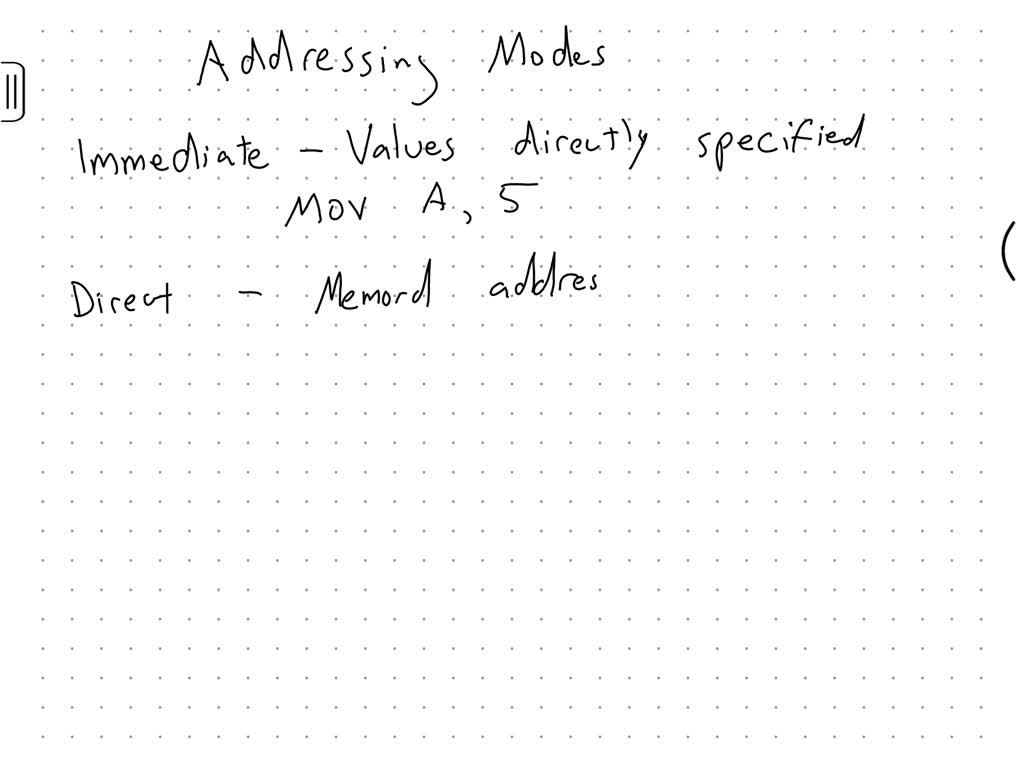 Addressing Modes
Immediate - Values directly specified
MOV A, 5
Direct - Memord addres